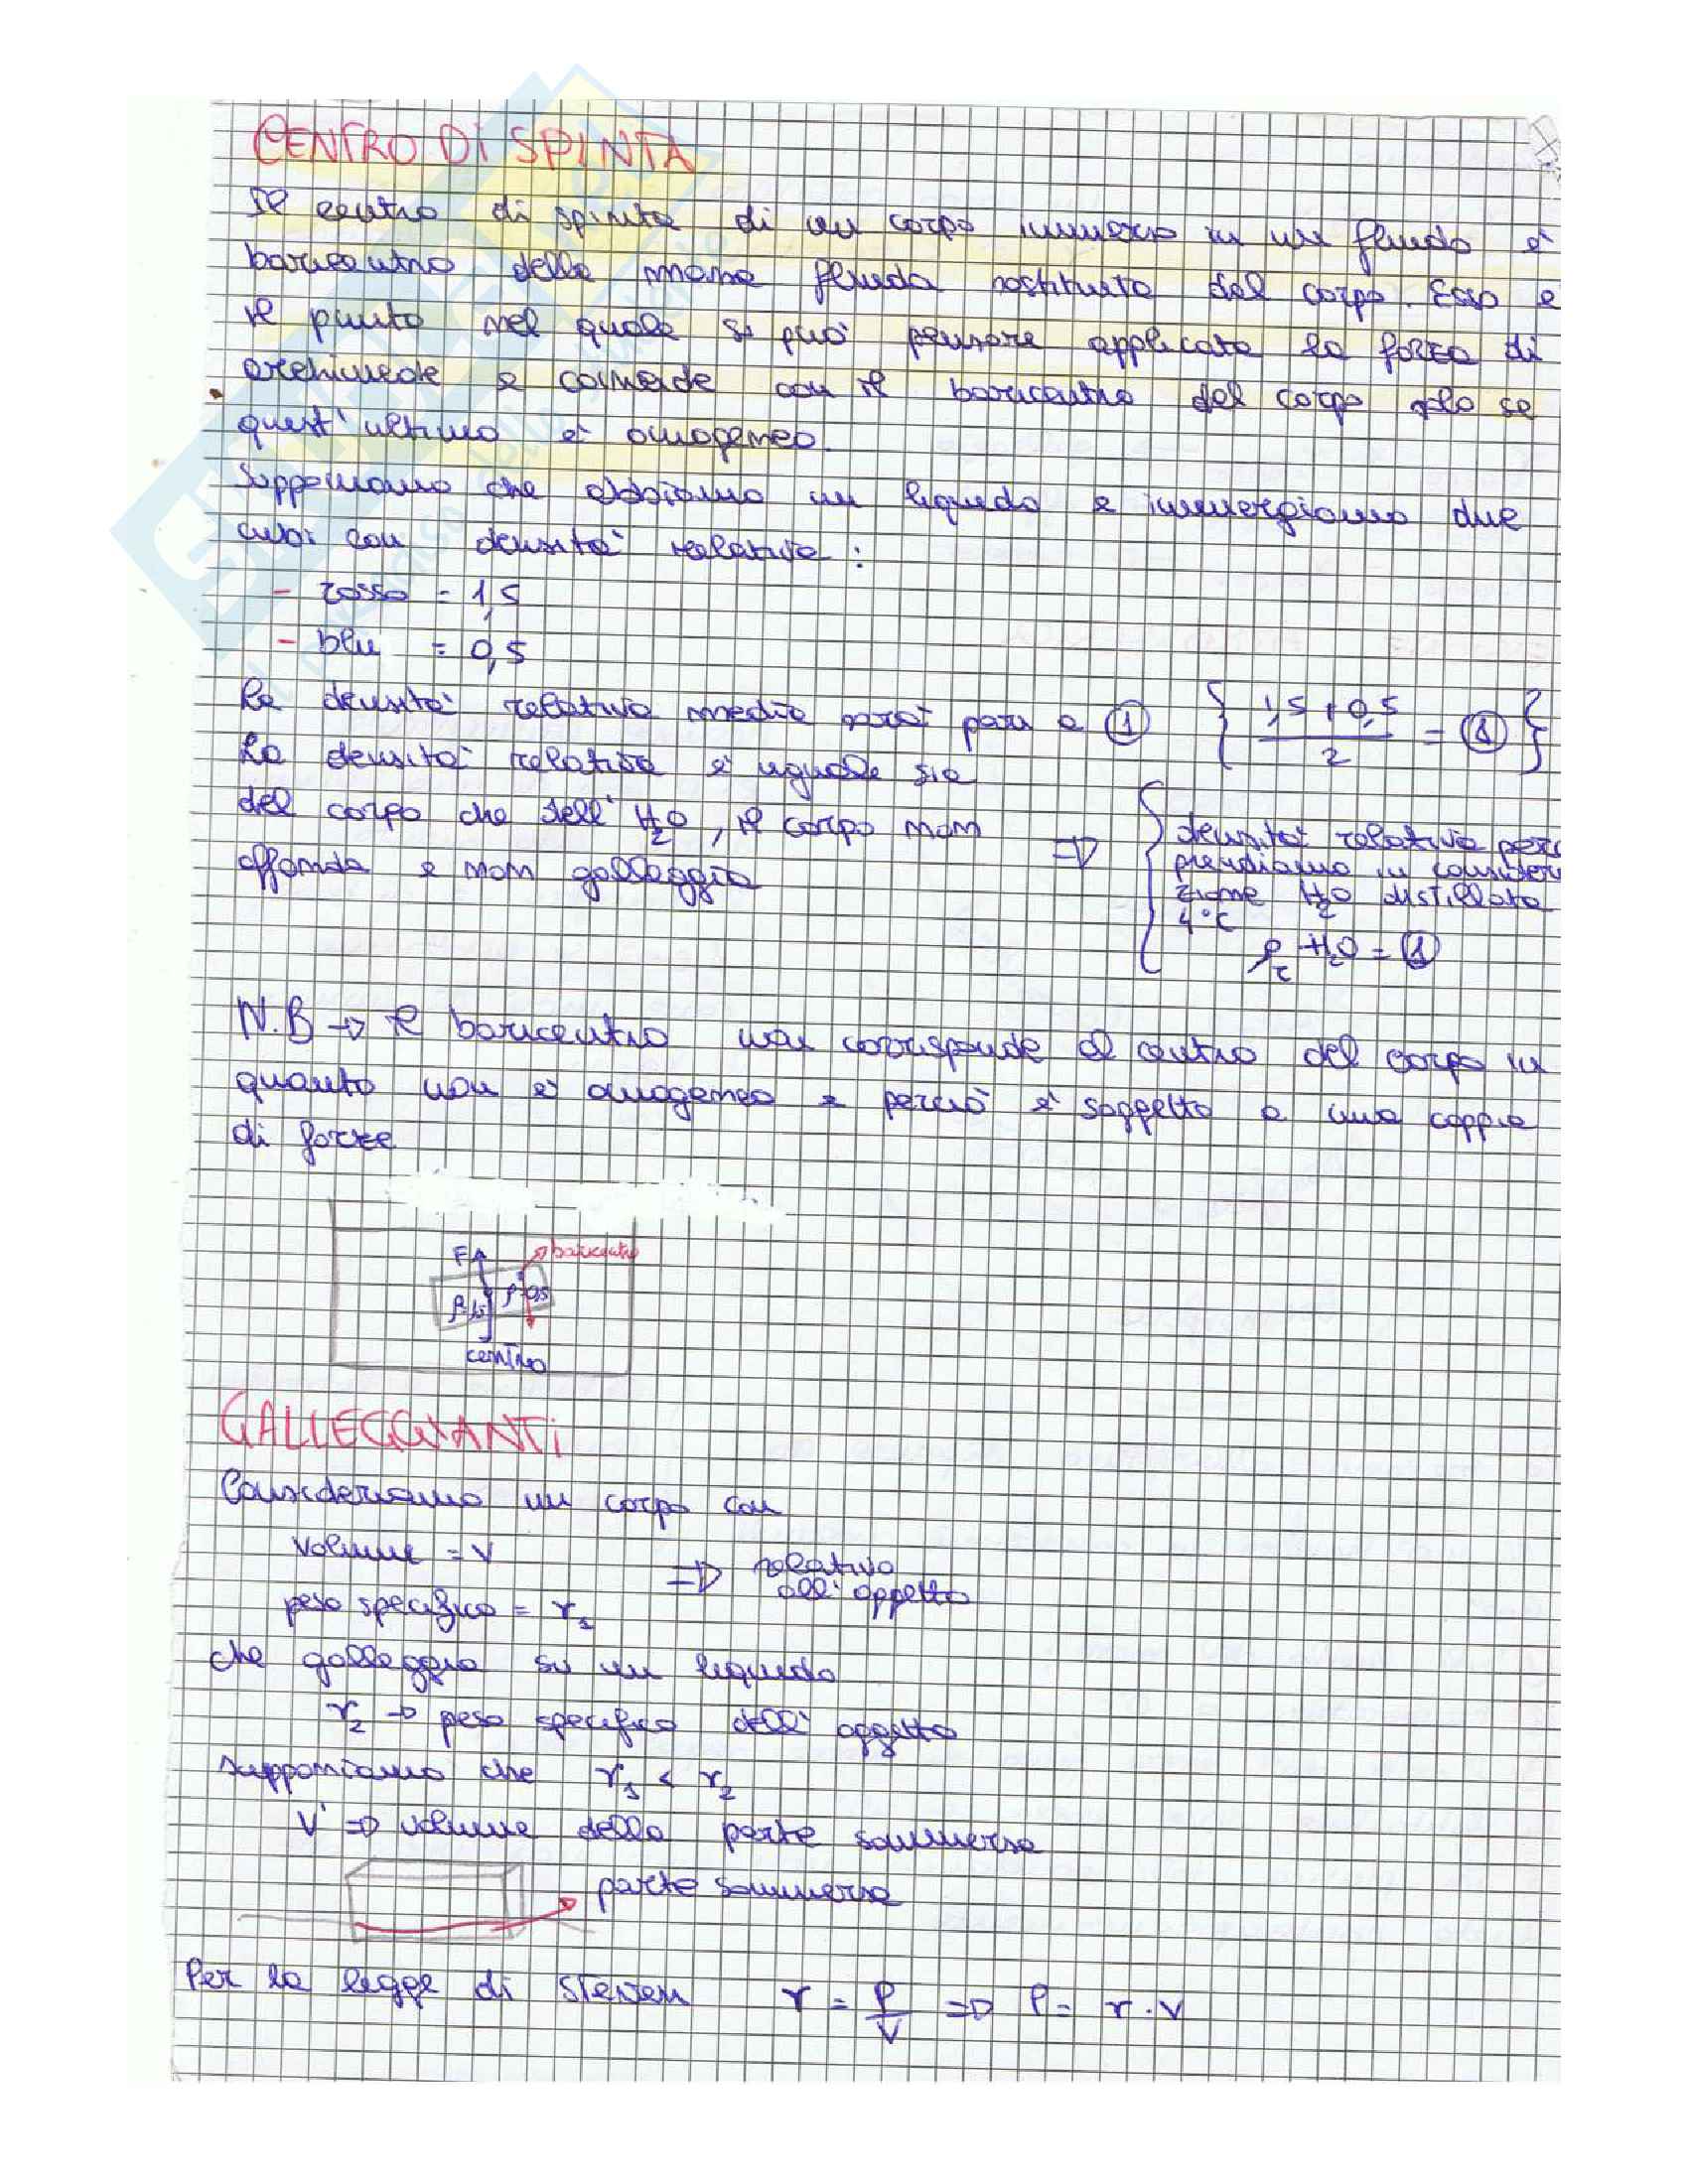 CENTRO DI SPINTA
Il centro di spinta di un corpo immerso in un fluido è
baricentro della massa fluida sostituita dal corpo. Esso è
il punto nel quale si può pensare applicata la forza di
archimede e coincide con il baricentro del corpo solo se
quest'ultimo è omogeneo.
Supponiamo che abbiamo un liquido e immergiamo due
cubi con densità relativa:
- rosso = 1,5
- blu = 0,5
La densità relativa media sarà pari a 1 { (1,5 + 0,5)/2 = 1 }
La densità relativa è uguale sia
del corpo che dell'H2O, il corpo non
affonda e non galleggia
=> { densità relativa perc
prendiamo in consider
zione H2O distillata
4°C
ρr H2O = 1
N.B → Il baricentro non corrisponde al centro del corpo in
quanto non è omogeneo e perciò è soggetto a una coppia
di forze
FA baricentro
ρ=1,5 ρ=0,5
centro
GALLEGGIANTI
Consideriamo un corpo con
volume = V
=> relativo
all'oggetto
peso specifico = γ1
che galleggia su un liquido
γ2 → peso specifico dell'oggetto
supponiamo che γ1 < γ2
V' => volume della parte sommersa
parte sommersa
Per la legge di Steven γ = P/V => P = γ · V